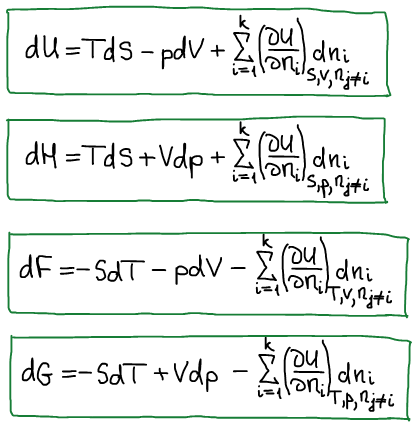 dU = TdS − pdV + ∑_{i=1}^{k} (∂U/∂n_i)_{S,V,n_{j≠i}} dn_i
dH = TdS + Vdp + ∑_{i=1}^{k} (∂U/∂n_i)_{S,p,n_{j≠i}} dn_i
dF = −SdT − pdV − ∑_{i=1}^{k} (∂U/∂n_i)_{T,V,n_{j≠i}} dn_i
dG = −SdT + Vdp − ∑_{i=1}^{k} (∂U/∂n_i)_{T,p,n_{j≠i}} dn_i